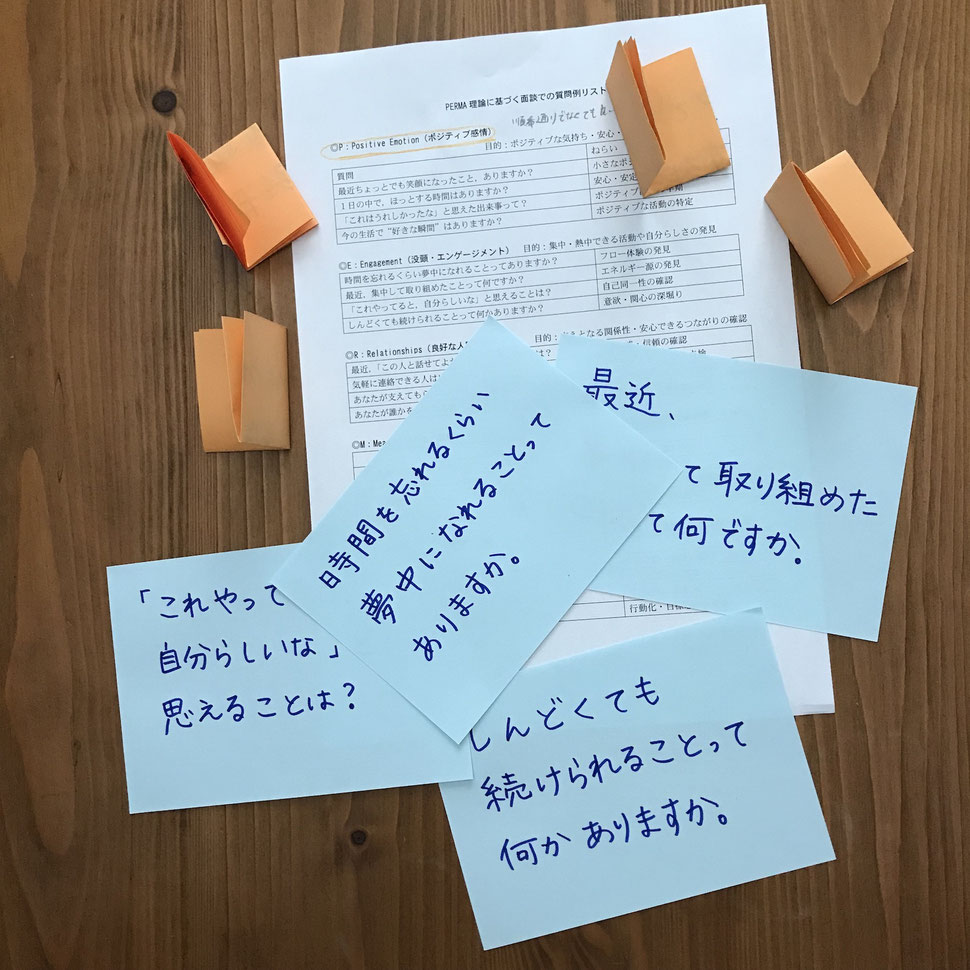 PERMA 理論に基づく面談での質問例リスト
順番通りでなくても
◎P：Positive Emotion（ポジティブ感情）
目的：ポジティブな気持ち・安心・
質問
ねらい
最近ちょっとでも笑顔になったこと、ありますか？
小さなポジ
1日の中で、ほっとする時間はありますか？
安心・安定
「これはうれしかったな」と思えた出来事って？
ポジティブ
今の生活で“好きな瞬間”はありますか？
ポジティブな活動の特定
◎E：Engagement（没頭・エンゲージメント） 目的：集中・熱中できる活動や自分らしさの発見
時間を忘れるくらい夢中になれることってありますか？
フロー体験の発見
最近、集中して取り組めたことって何ですか？
エネルギー源の発見
「これやってると、自分らしいな」と思えることは？
自己同一性の確認
しんどくても続けられることって何かありますか？
意欲・関心の深堀り
◎R：Relationships（良好な人
目的：
となる関係性・安心できるつながりの確認
最近、「この人と話せてよか
は？
・信頼の確認
気軽に連絡できる人は
あなたが支えても
あなたが誰かを
◎M：Mea
行動化・目標
最近、
て取り組めた
て何ですか。
時間を忘れるくらい
夢中になれることって
ありますか。
「これやって
自分らしいな」
思えることは？
しんどくても
続けられることって
何かありますか。